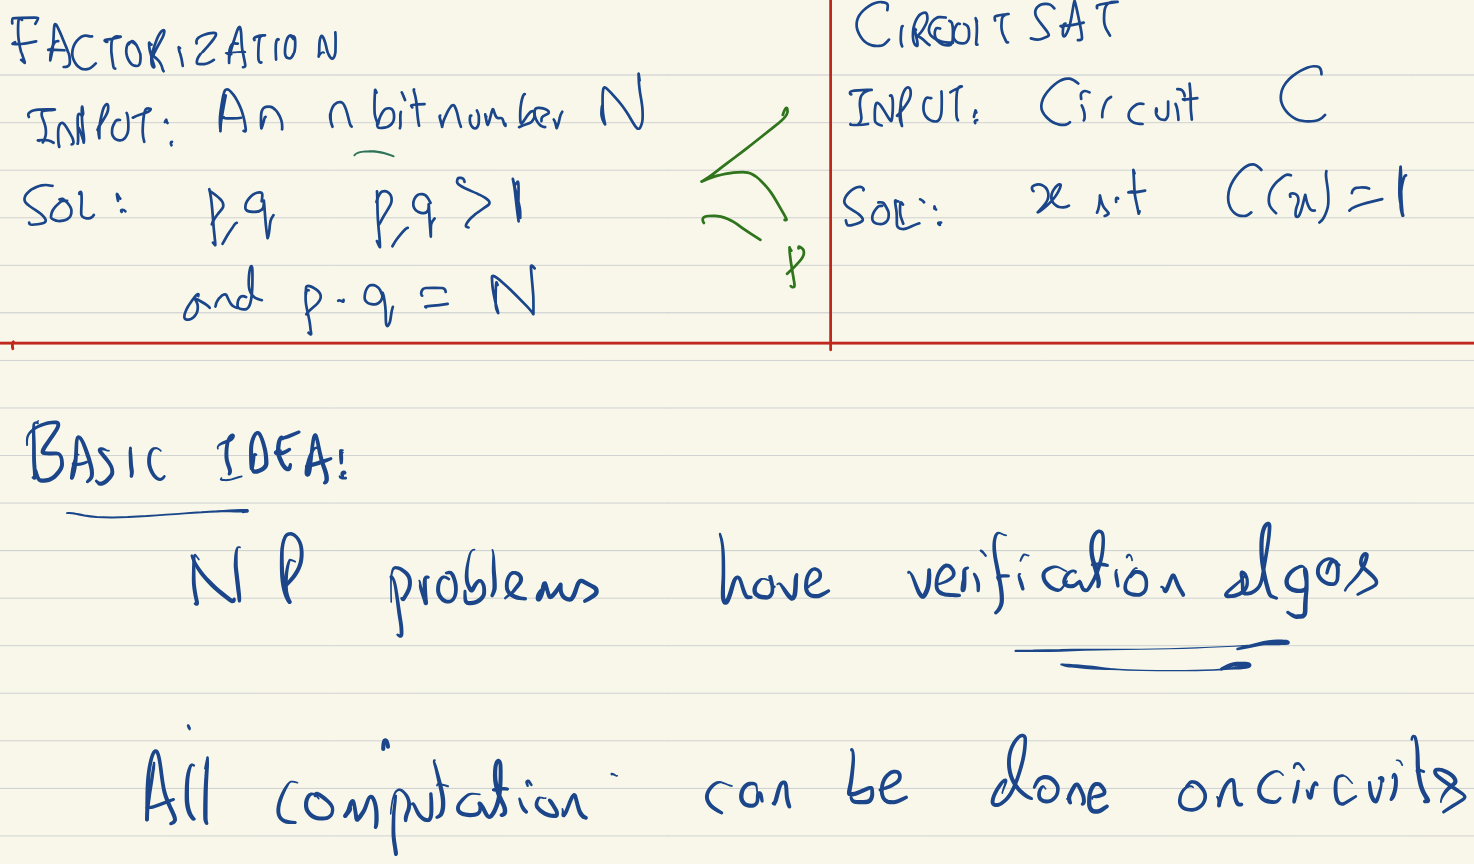 FACTORIZATION
INPUT: An n bit number N
SOL: p,q p,q > 1
and p · q = N
≤p
CIRCUIT SAT
INPUT: Circuit C
SOL: x s.t C(x) = 1
BASIC IDEA:
NP problems have verification algos
All computation can be done on circuits